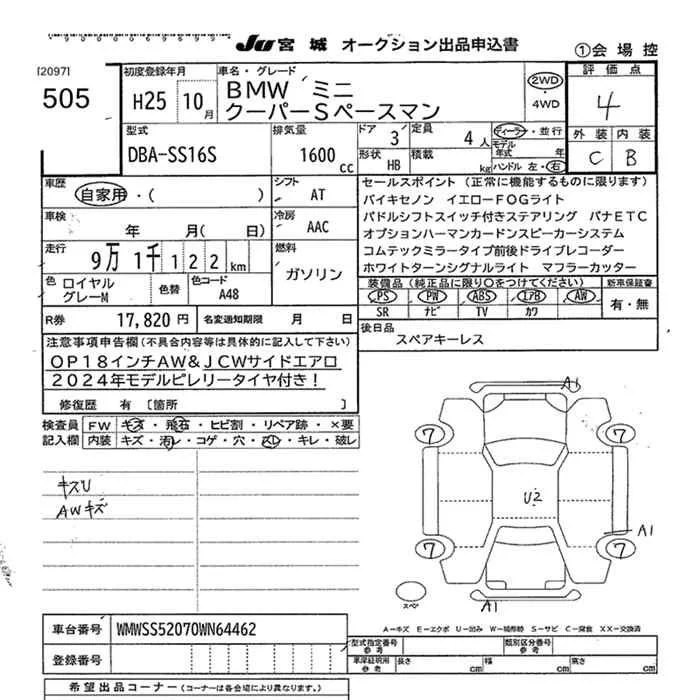 JU 宮城 オークション出品申込書
①会場控
[2097]
505
初度登録年月
H25 10月
車名・グレード
BMW ミニ
クーパーSペースマン
2WD
・
4WD
評価点
4
外装 内装
C B
型式
DBA-SS16S
排気量
1600cc
ドア 3
定員 4人
形状 HB
積載 kg
ディーラー・並行
モデル年式 年
ハンドル 左・右
車歴
自家用・( )
シフト
AT
車検
年 月( 日)
冷房
AAC
走行
9万1千122km
燃料
ガソリン
色 ロイヤルグレーM
色替
色コード
A48
R券 17,820円
名変通知期限 月 日
セールスポイント(正常に機能するものに限ります)
バイキセノン イエローFOGライト
パドルシフトスイッチ付きステアリング バナETC
オプションハーマンカードンスピーカーシステム
コムテックミラータイプ前後ドライブレコーダー
ホワイトターンシグナルライト マフラーカッター
装備品(純正品に限り○をつけてください)
新車保証書
PS PW ABS エアB AW
有・無
SR ナビ TV カワ
後日品
スペアキーレス
注意事項申告欄(不具合内容等は具体的に記入して下さい)
OP18インチAW&JCWサイドエアロ
2024年モデルピレリータイヤ付き!
修復歴 有 〔箇所 〕
検査員記入欄
FW キズ・飛石・ヒビ割・リペア跡・×要
内装 キズ・汚レ・コゲ・穴・スレ・キレ・破レ
キズU
AWキズ
A1
7 7
U2
A1
7 7
スペア
A1
A-キズ E-エクボ U-凹み W-補修跡 S-サビ C-腐食 XX-交換済
車台番号 WMWSS52070WN64462
登録番号
型式指定番号 参考
類別区分番号 参考
車庫証明用 参考 長さ cm 幅 cm 高さ cm
希望出品コーナー(コーナーは各会場により異なります。)